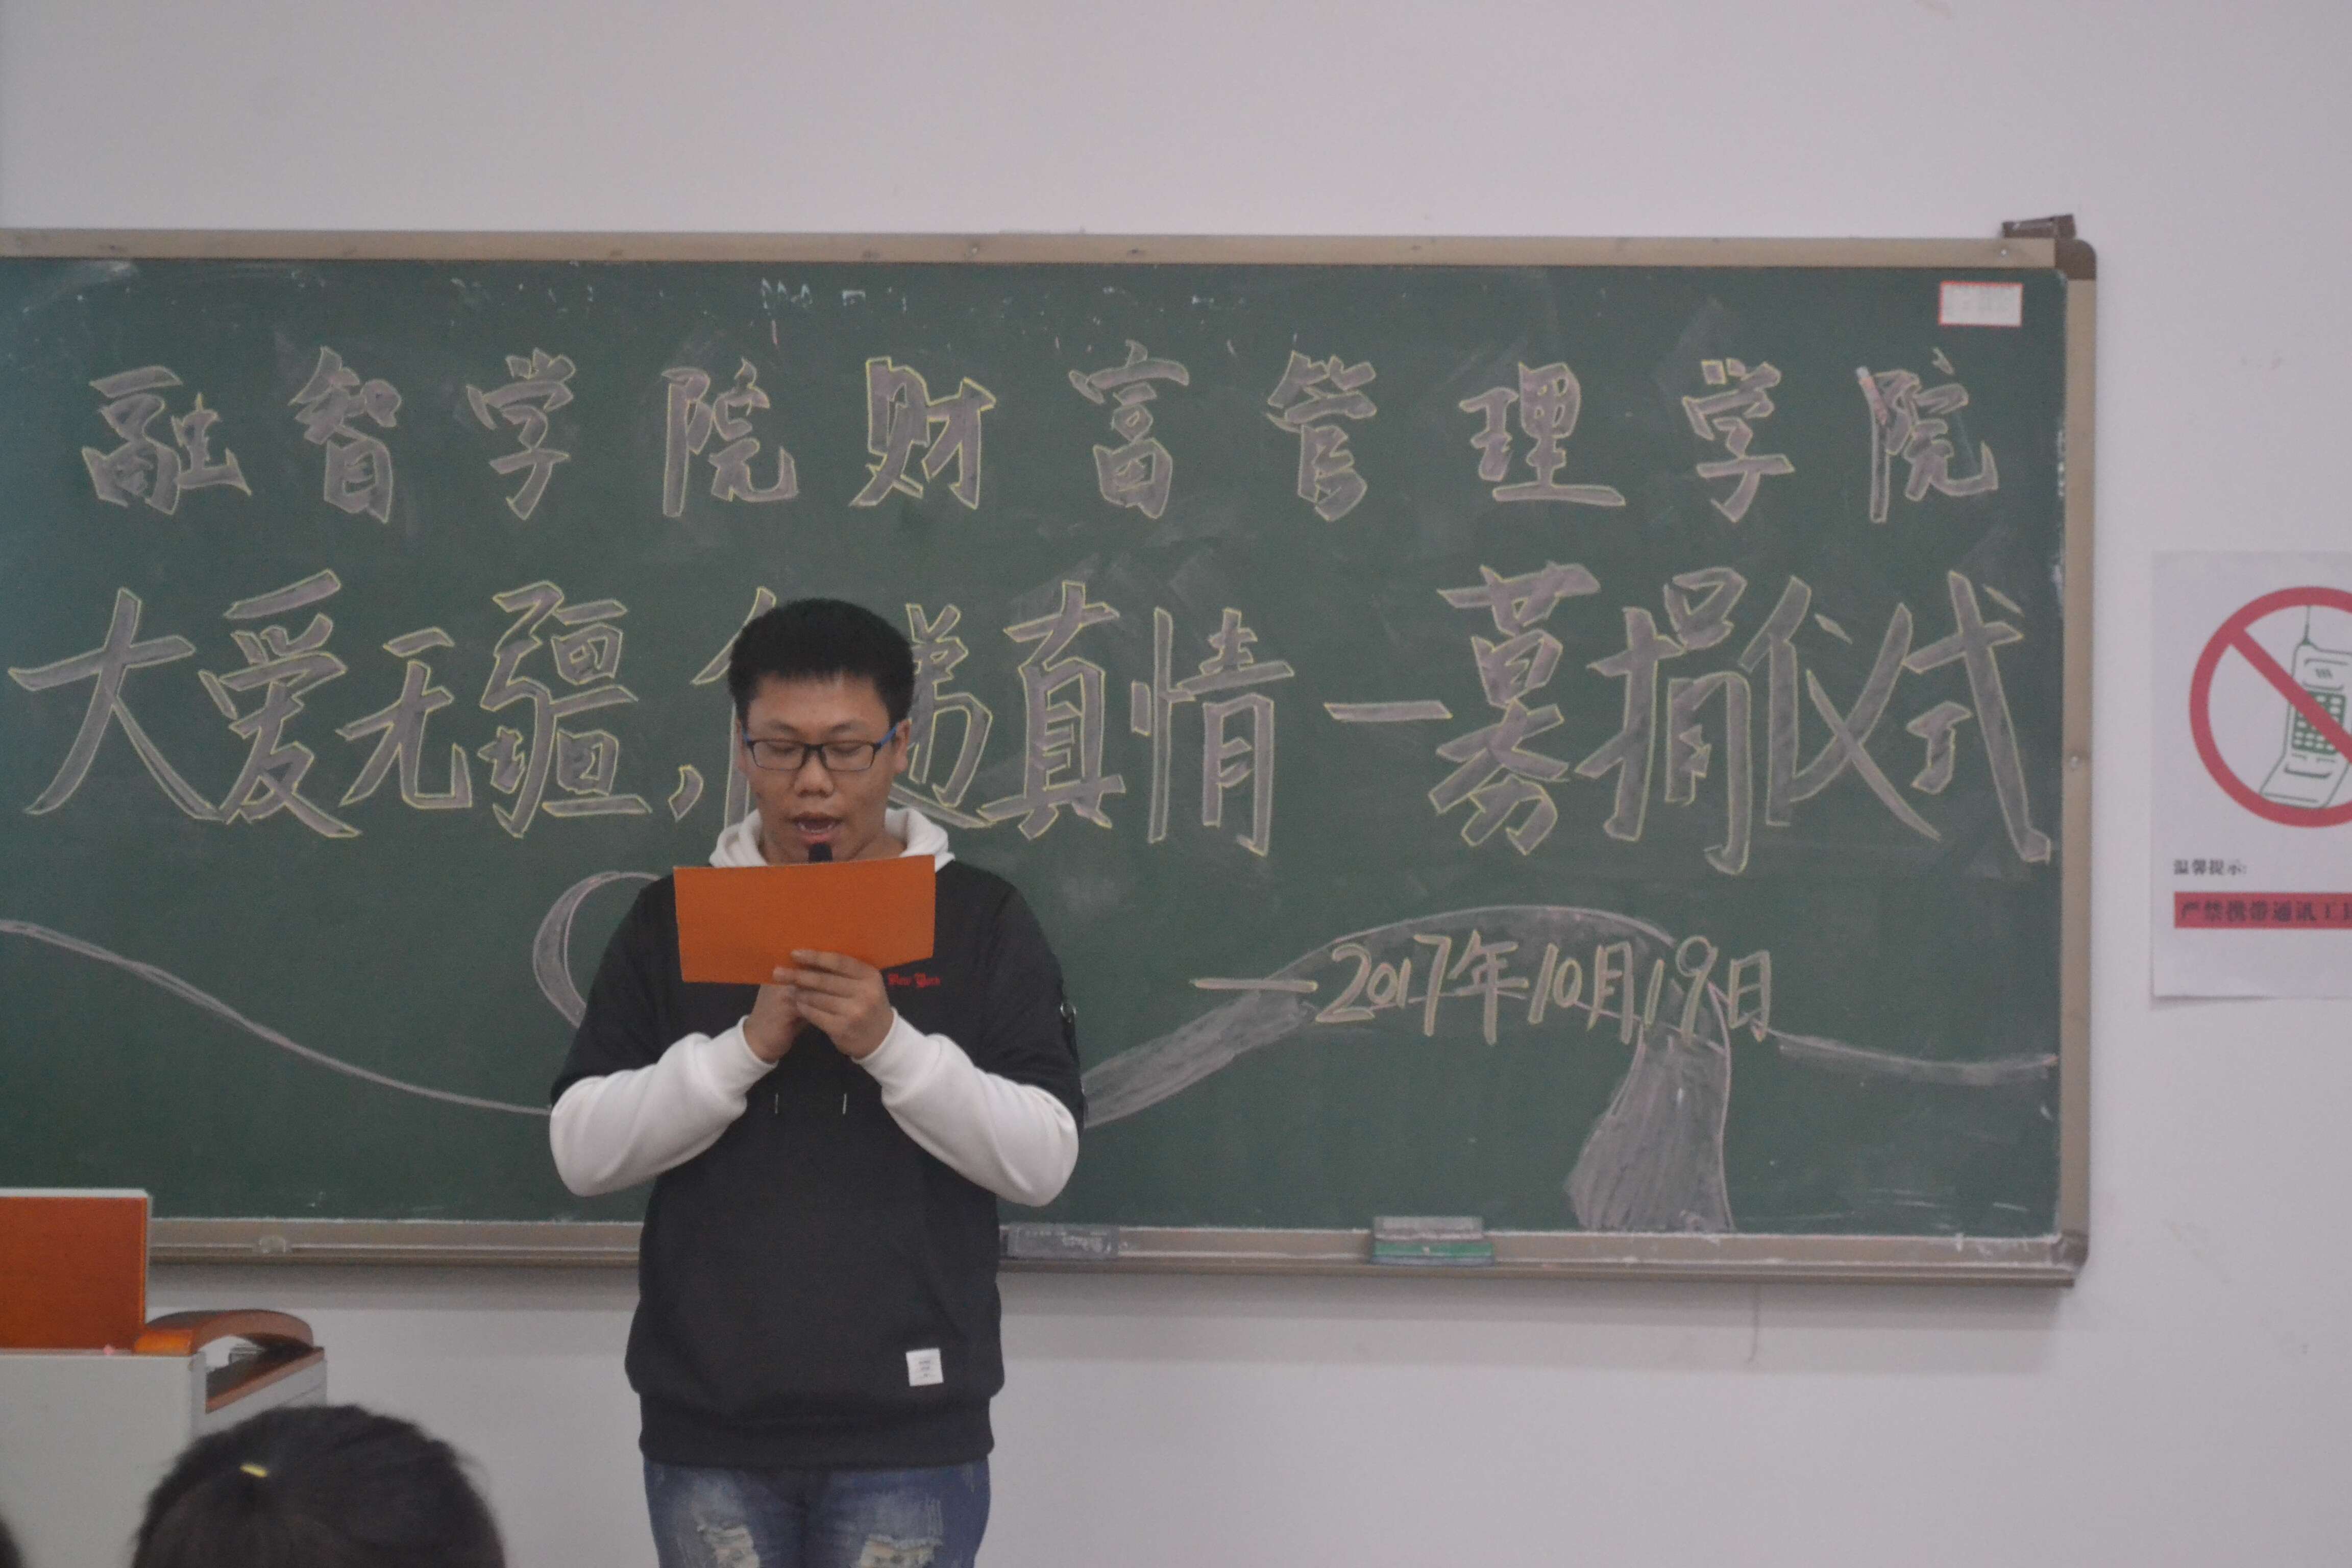 融智学院财富管理学院
大爱无疆,递真情一募捐仪式
一2017年10月19日
New York
温馨提示:
严禁携带通讯工